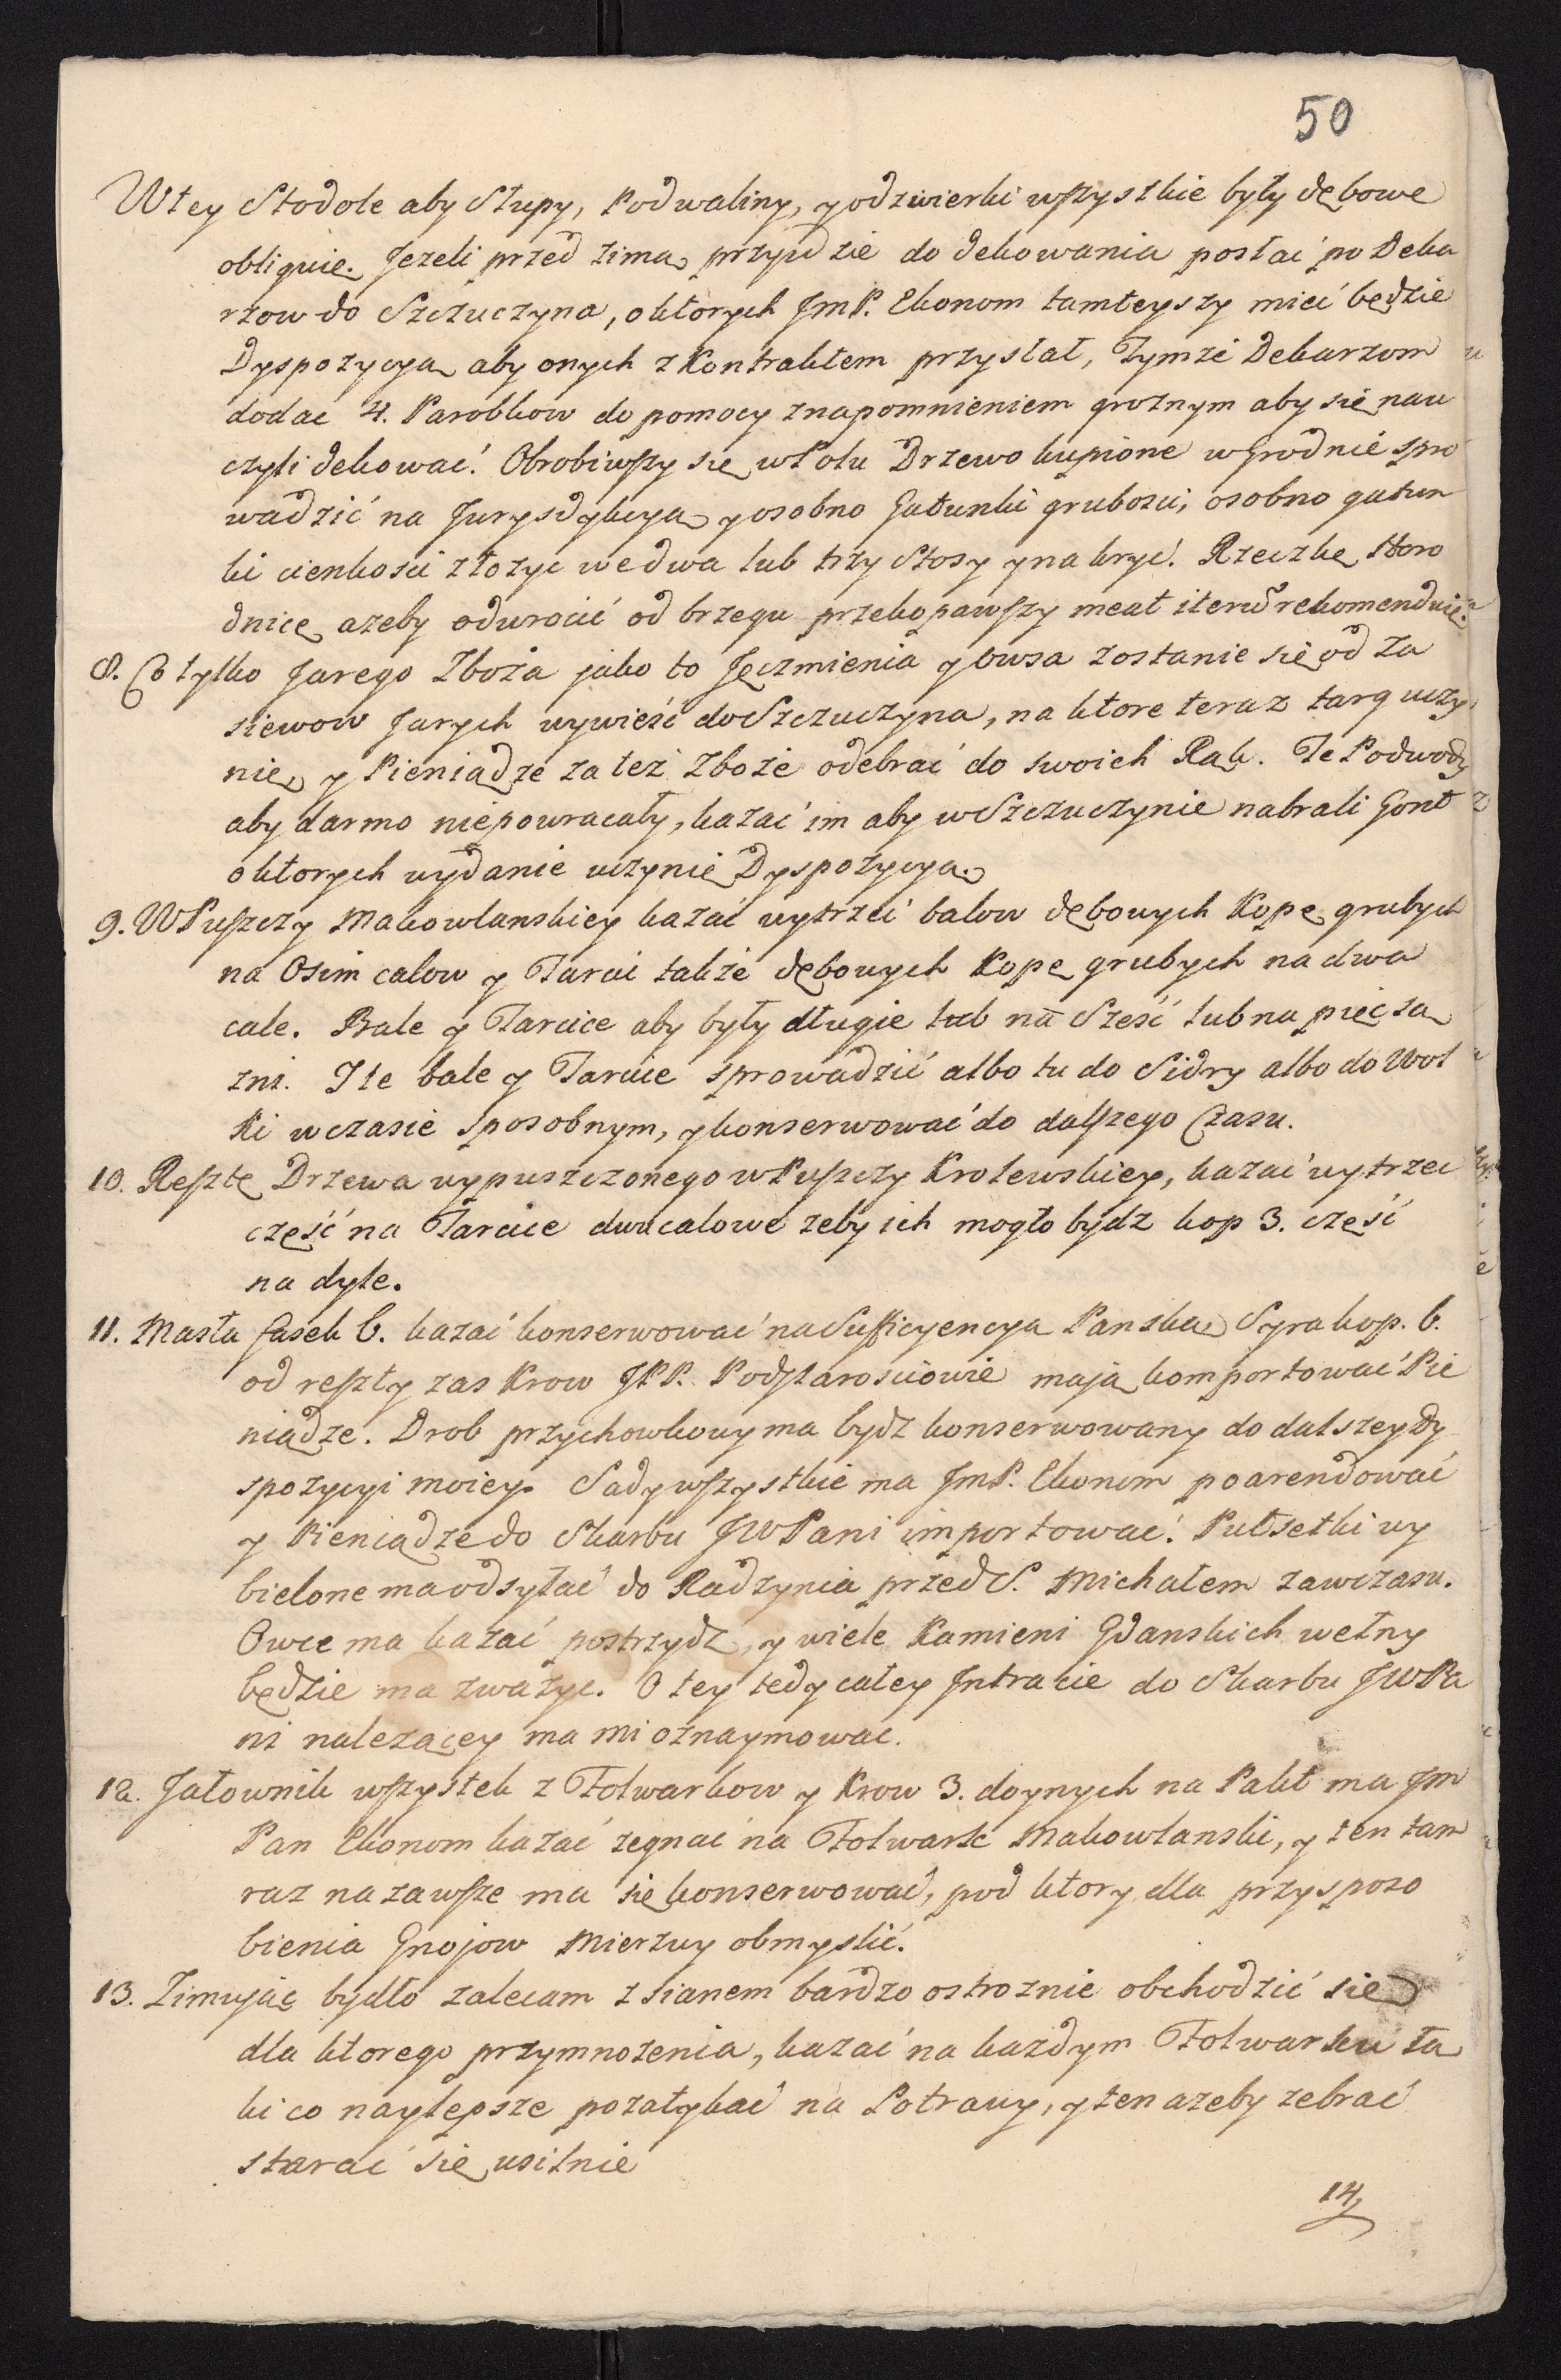 50
W tey Stodole aby Słupy, Podwaliny, y odzwierki wszystkie były dębowe
obliguię. Jezeli przed zimą przyidzie do dekowania posłać po Deka
rzow do Szczuczyna, o ktorych JmP. Ekonom tamteyszy mieć będzie
Dyspozycyą aby onych z Kontraktem przysłał, Tymże Dekarzom
dodac 4. Parobkow do pomocy z napomnieniem groznym aby się nau
czyli dekować. Obrobiwszy się w Polu Drzewo kupione w Grodnie spro
wadzić na Jurysdykcyą y osobno Gatunki grubosci, osobno gatun
ki cienkosci złozyc we dwa lub trzy Stosy y nakryć. Rzeczkę Horo
dnicę azeby odwrocić od brzegu przekopawszy meat iterum rekomenduię.
8. Co tylko Jarego Zboża jako to Jęczmienia y Owsa zostanie się od Za
siewow Jarych wywieść do Szczuczyna, na ktore teraz targ uczy
nię y Pieniądze za też Zboże odebrać do swoich Rąk. Te Podwody
aby darmo niepowracały, kazać im aby w Szczuczynie nabrali Gont
o ktorych wydanie uczynię Dyspozycyą.
9. W Puszczy Makowlanskiey kazać wytrzeć balow dębowych Kopę grubych
na Osim calow y Tarcic także dębowych Kopę grubych na dwa
cale. Bale y Tarcice aby były długie lub na Sześć lub na pięc są
zni. I te bale y Tarcice sprowadzić albo tu do Sidry albo do Wol
ki w czasie sposobnym, y konserwować do dalszego Czasu.
10. Resztę Drzewa wypuszczonego w Puszczy Krolewskiey, kazać wytrzec
część na Tarcice dwucalowe zeby ich mogło bydz kop 3. część
na dyle.
11. Masła fasek 6. kazać konserwować na Sufficyencyą Panską Syra kop. 6.
od reszty zas Krow JPP. Podstarosciowie mają komportować Pie
niądze. Drob przychowkowy ma bydz konserwowany do dalszey Dy
spozycyi moiey. Sady wszystkie ma JmP. Ekonom poarendować
y Pieniądze do Skarbu JWPani importować. Pułsetki wy
bielone ma odsyłać do Radzynia przed S. Michałem zawczasu.
Owce ma kazać postrzydz, y wiele Kamieni Gdanskich wełny
będzie ma zwazyc. O tey tedy całey Intracie do Skarbu JWPa
ni nalezącey ma mi oznaymowac.
12. Jałownik wszystek z Folwarkow y Krow 3. doynych na Pakt ma Jm
Pan Ekonom kazać zegnać na Folwark Makowlanski, y ten tam
raz na zawsze ma się konserwować, pod ktory dla przysposo
bienia Gnojow Mierzwy obmyslić.
13. Zimując bydło zalecam z sianem bardzo ostroznie obchodzić się
dla ktorego przymnozenia, kazać na kazdym Folwarku łą
ki co naylepsze pozatykać na Potrawy, y ten azeby zebrać
starać się usilnie
14